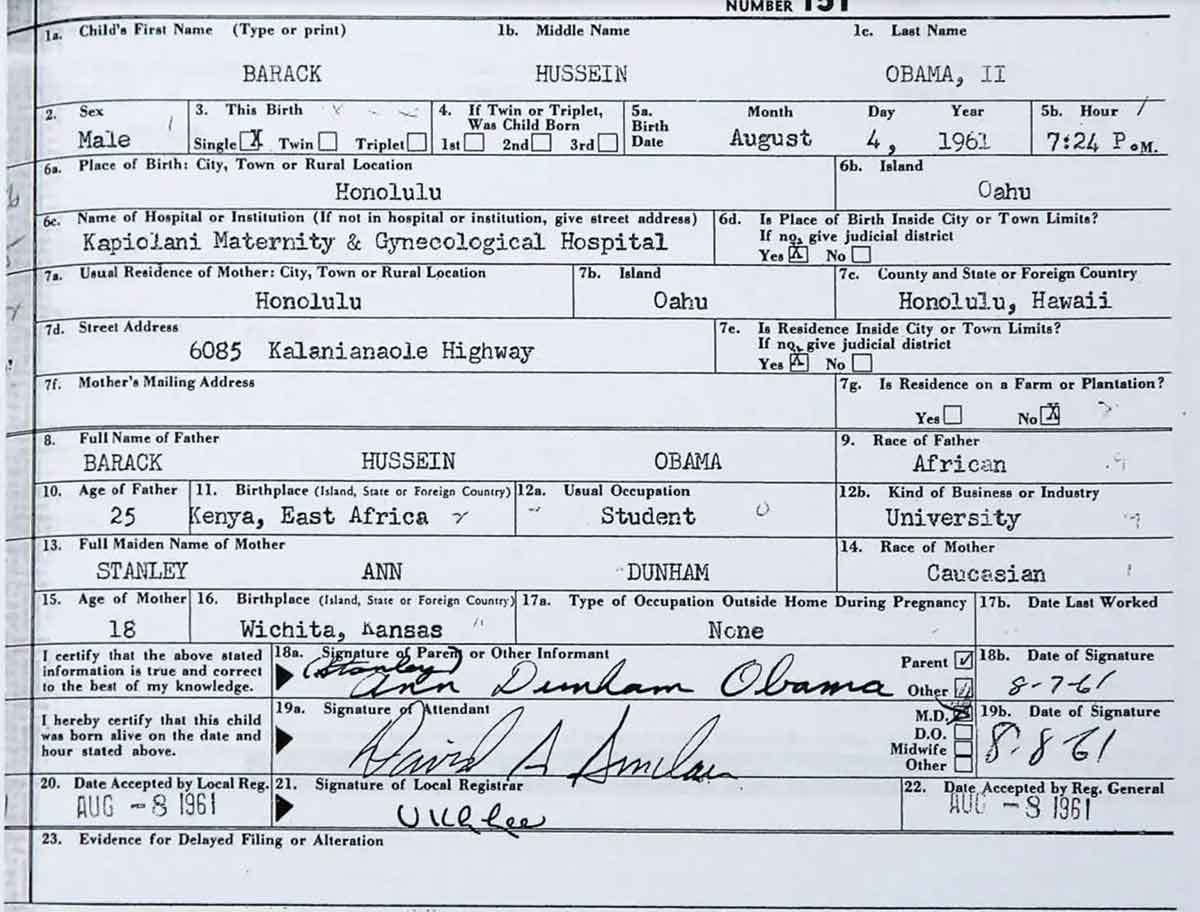 NUMBER 151
1a. Child's First Name (Type or print) 1b. Middle Name 1c. Last Name
BARACK HUSSEIN OBAMA, II
2. Sex 3. This Birth 4. If Twin or Triplet, Was Child Born 5a. Birth Date Month Day Year 5b. Hour
Male Single X Twin Triplet 1st 2nd 3rd August 4, 1961 7:24 P.M.
6a. Place of Birth: City, Town or Rural Location 6b. Island
Honolulu Oahu
6c. Name of Hospital or Institution (If not in hospital or institution, give street address) 6d. Is Place of Birth Inside City or Town Limits?
If no, give judicial district
Kapiolani Maternity & Gynecological Hospital Yes X No
7a. Usual Residence of Mother: City, Town or Rural Location 7b. Island 7c. County and State or Foreign Country
Honolulu Oahu Honolulu, Hawaii
7d. Street Address 7e. Is Residence Inside City or Town Limits?
If no, give judicial district
6085 Kalanianaole Highway Yes X No
7f. Mother's Mailing Address 7g. Is Residence on a Farm or Plantation?
Yes No X
8. Full Name of Father 9. Race of Father
BARACK HUSSEIN OBAMA African
10. Age of Father 11. Birthplace (Island, State or Foreign Country) 12a. Usual Occupation 12b. Kind of Business or Industry
25 Kenya, East Africa Student University
13. Full Maiden Name of Mother 14. Race of Mother
STANLEY ANN DUNHAM Caucasian
15. Age of Mother 16. Birthplace (Island, State or Foreign Country) 17a. Type of Occupation Outside Home During Pregnancy 17b. Date Last Worked
18 Wichita, Kansas None
I certify that the above stated information is true and correct to the best of my knowledge.
18a. Signature of Parent or Other Informant Parent Other 18b. Date of Signature
(Stanley) Ann Dunham Obama 8-7-61
I hereby certify that this child was born alive on the date and hour stated above.
19a. Signature of Attendant M.D. X D.O. Midwife Other 19b. Date of Signature
David A Sinclair 8-8-61
20. Date Accepted by Local Reg. 21. Signature of Local Registrar 22. Date Accepted by Reg. General
AUG -8 1961 U K L Lee AUG -8 1961
23. Evidence for Delayed Filing or Alteration